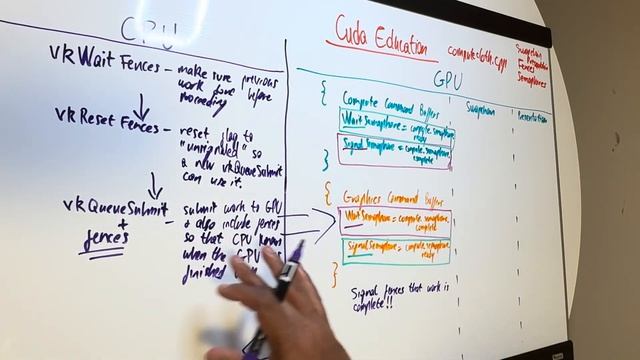 CPU
vkWait Fences - make sure previous
work done before
proceeding
vkReset Fences - reset flag to
"unsignaled" so
a new vkQueueSubmit
can use it.
vkQueueSubmit - submit work to GPU
+
fences
+ also include fences
so that CPU knows
when the GPU
finished
Cuda Education
computecloth.cpp
Swapchain
Presentation
Fences
Semaphores
GPU
{ Compute Command Buffers
Wait Semaphore = compute.semaphore
ready
Signal Semaphore = compute.semaphore
complete
}
Swapchain
Presentation
{ Graphics Command Buffers
Wait Semaphore = compute.semaphore
complete
Signal Semaphore = compute.semaphore
ready
}
Signal fences that work is
complete!!